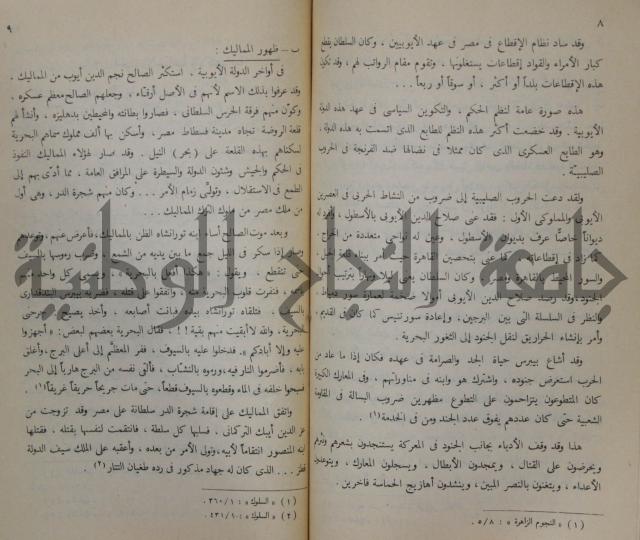 ٨
وقد ساد نظام الإقطاع فى مصر فى عهد الأيوبيين ، وكان السلطان يقطع
كبار الأمراء والقواد إقطاعات يستغلونها ، وتقوم مقام الرواتب لهم ، وقد تكون
هذه الإقطاعات بلداً أو أكثر ، أو سوقاً أو ربعاً ...
هذه صورة عامة لنظم الحكم ، والتكوين السياسى فى عهد هذه الدولة
الأيوبية . وقد خضعت أكثر هذه النظم للطابع الذى اتسمت به هذه الدولة ،
وهو الطابع العسكرى الذى كان ممثلا فى نضالها ضد الفرنجة فى الحروب
الصليبية .
ولقد دعت الحروب الصليبية إلى ضروب من النشاط الحربى فى العصرين
الأيوبى والمملوكى الأول : فقد عنى صلاح الدين الأيوبى بالأسطول ، وأفرد له
ديواناً خاصاً عرف بديوان الأسطول ، وعين له نواحى متعددة من الخراج ،
كما زاد فى إقطاعاته . كما عنى بتحصين القاهرة
والسور المحيط بالقاهرة وكان السلطان
الجنود ، وقد رصد صلاح الدين الأيوبى أموالا ضخمة لعمارة سور دمياط
والنظر فى السلسلة التى بين البرجين ، وإعادة سور تنيس كما كان فى القديم ،
وأمر بإنشاء الحراريق لنقل الجنود إلى الثغور البحرية .
وقد أشاع بيبرس حياة الجد والصرامة فى عهده فكان إذا ما عاد من
الحرب استعرض جنوده ، واشترك هو وابنه فى مناوراتهم ، وفى المعارك الكبيرة
كان المتطوعون يتزاحمون على التطوع مظهرين ضروب البسالة فى المقاومة
الشعبية حتى كان عددهم يفوق عدد الجند ومن فى الخدمة (١) .
هذا وقد وقف الأدباء بجانب الجنود فى المعركة يستنجدون بشعرهم ونثرهم
ويحرضون على القتال ، ويمجدون الأبطال ، ويسجلون المعارك ، ويتوعدون
الأعداء ، ويتغنون بالنصر المبين ، وينشدون أهازيج الحماسة فاخرين .
(١) « النجوم الزاهرة » : ٥/٨ .
٩
ب – ظهور المماليك :
فى أواخر الدولة الأيوبية . استكثر الصالح نجم الدين أيوب من المماليك .
وقد عرفوا بذلك الاسم لأنهم فى الأصل أرقاء ، وجعلهم الصالح معظم عسكره .
وكون منهم فرقة الحرس السلطانى ، فصاروا بطانته والمحيطين بدهليزه ، وأنشأ لهم
قلعة الروضة تجاه مدينة فسطاط مصر ، وأسكن بها ألف مملوك سماهم البحرية
لسكناهم بهذه القلعة على (بحر) النيل . وقد صار لهؤلاء المماليك النفوذ
فى الحكم والجيش وشئون الدولة والسيطرة على المرافق العامة ، مما أدى بهم إلى
الطمع فى الاستقلال ، وتولى زمام الأمر ... وكان منهم شجرة الدر ، وهى أول
من ملك مصر من ملوك الترك المماليك ...
وبعد موت الصالح أساء ابنه تورانشاه الظن بالمماليك ، فأعرض عنهم ، وتوعدهم
إذا سكر فى الليل جمع ما بين يديه من الشمع وضرب رءوسها بالسيف
حتى تنقطع ، ويقول : هكذا أفعل بالبحرية ، ويسمى كل واحد منهم
باسمه ، فنفرت قلوب البحرية منه ، واتفقوا على قتله . فضربه بيبرس البندقدارى
بالسيف ، فتلقاه تورانشاه بيده فبانت أصابعه ، وأخذ يصيح :
البحرية ، والله لا أبقيت منهم بقية ! ! ، فقال البحرية بعضهم لبعض : « أجهزوا
عليه وإلا أبادكم » . فدخلوا عليه بالسيوف ، ففر المعظم إلى أعلى البرج ، وأغلق
بابه ، فأضرموا النار فيه ، ورموه بالنشاب ، فألقى نفسه من البرج هارباً إلى البحر
فسبحوا خلفه فى الماء وقطعوه بالسيوف قطعاً ، حتى مات جريحاً حريقاً غريقاً (١) .
واتفق المماليك على إقامة شجرة الدر سلطانة على مصر وقد تزوجت من
عز الدين أيبك التركمانى . فسلبها كل سلطة ، فانتقمت لنفسها بقتله ، فقتلها
ابنه المنصور انتقاماً لأبيه ، وتولى الأمر من بعده ، وأعقبه على الملك سيف الدولة
قطز ... الذى كان له جهاد مذكور فى رده طغيان التتار (٢) .
(١) « السلوك » : ٣٦٠/١ .
(٢) « السلوك » : ٤٣١/١ .
جامعة النجاح الوطنية